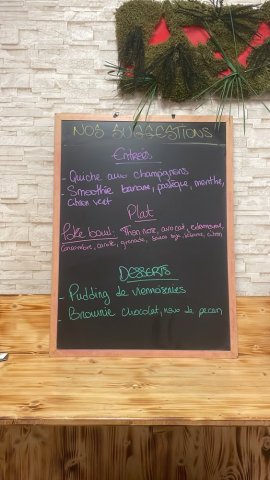 NOS SUGGESTIONS
Entrées
- Quiche aux champignons
Smoothie banane, pastèque, menthe,
citron vert
Plat
Poke bowl: Thon mi, avocat, edamame,
Concombre, carotte, grenade, sauce soja, sésame, citron
DESSERTS
- Pudding de viennoiseries
- Brownie chocolat, noix de pecan